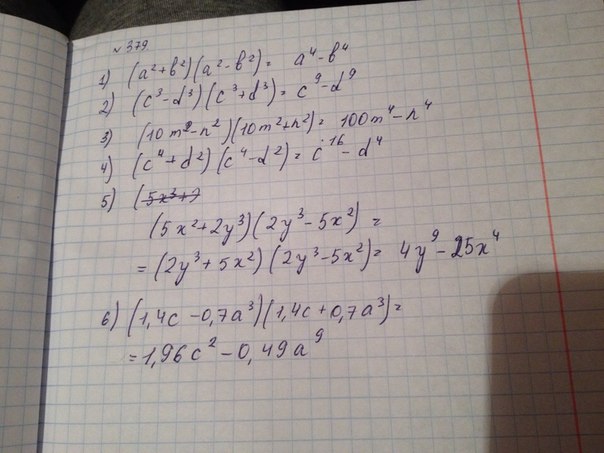 № 379
1) (a²+b²)(a²-b²)= a⁴-b⁴
2) (c³-d³)(c³+d³)= c⁹-d⁹
3) (10m²-n²)(10m²+n²)= 100m⁴-n⁴
4) (c⁴+d²)(c⁴-d²)= c¹⁶-d⁴
5) (5x³+
(5x²+2y³)(2y³-5x²)=
=(2y³+5x²)(2y³-5x²)= 4y⁹-25x⁴
6) (1,4c-0,7a³)(1,4c+0,7a³)=
=1,96c²-0,49a⁹